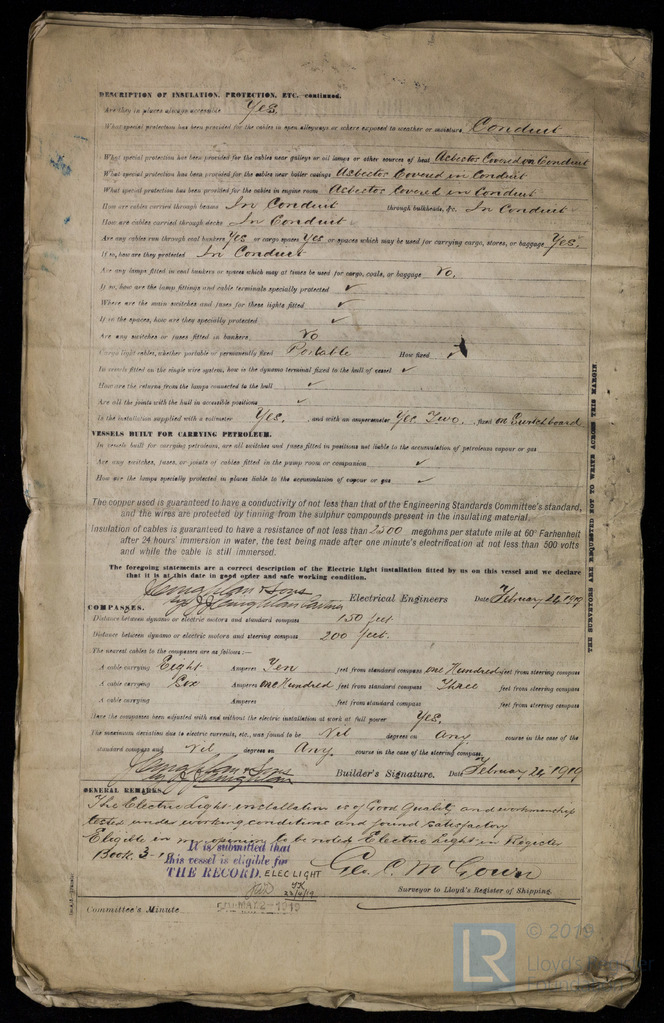 DESCRIPTION OF INSULATION, PROTECTION, ETC. continued.
Are they in places always accessible Yes.
What special protection has been provided for the cables in open alleyways or where exposed to weather or moisture Conduit
What special protection has been provided for the cables near galleys or oil lamps or other sources of heat Asbestos Covered in Conduit
What special protection has been provided for the cables near boiler casings Asbestos Covered in Conduit
What special protection has been provided for the cables in engine room Asbestos Covered in Conduit
How are cables carried through beams In Conduit through bulkheads, &c. In Conduit
How are cables carried through decks In Conduit
Are any cables run through coal bunkers Yes or cargo spaces Yes or spaces which may be used for carrying cargo, stores, or baggage Yes.
If so, how are they protected In Conduit
Are any lamps fitted in coal bunkers or spaces which may at times be used for cargo, coals, or baggage No.
If so, how are the lamp fittings and cable terminals specially protected ✓
Where are the main switches and fuses for these lights fitted ✓
If in the spaces, how are they specially protected ✓
Are any switches or fuses fitted in bunkers No
Cargo light cables, whether portable or permanently fixed Portable How fixed ✓
In vessels fitted on the single wire system, how is the dynamo terminal fixed to the hull of vessel ✓
How are the returns from the lamps connected to the hull ✓
Are all the joints with the hull in accessible positions ✓
Is the installation supplied with a voltmeter Yes. , and with an amperemeter Yes Two. , fixed on Switchboard
VESSELS BUILT FOR CARRYING PETROLEUM.
In vessels built for carrying petroleum, are all switches and fuses fitted in positions not liable to the accumulation of petroleum vapour or gas
Are any switches, fuses, or joints of cables fitted in the pump room or companion ✓
How are the lamps specially protected in places liable to the accumulation of vapour or gas ✓
The copper used is guaranteed to have a conductivity of not less than that of the Engineering Standards Committee's standard,
and the wires are protected by tinning from the sulphur compounds present in the insulating material.
Insulation of cables is guaranteed to have a resistance of not less than 2500 megohms per statute mile at 60° Farhenheit
after 24 hours' immersion in water, the test being made after one minute's electrification at not less than 500 volts
and while the cable is still immersed.
The foregoing statements are a correct description of the Electric Light installation fitted by us on this vessel and we declare
that it is at this date in good order and safe working condition.
& Sons
Electrical Engineers Date February 24, 1919
COMPASSES.
Distance between dynamo or electric motors and standard compass 150 feet.
Distance between dynamo or electric motors and steering compass 200 feet.
The nearest cables to the compasses are as follows:—
A cable carrying Eight Amperes Ten feet from standard compass one Hundred feet from steering compass
A cable carrying Six Amperes one Hundred feet from standard compass Three feet from steering compass
A cable carrying Amperes feet from standard compass feet from steering compass
Have the compasses been adjusted with and without the electric installation at work at full power Yes.
The maximum deviation due to electric currents, etc., was found to be Nil degrees on Any course in the case of the
standard compass and Nil degrees on Any course in the case of the steering compass.
& Sons
Builder's Signature. Date February 24, 1919
GENERAL REMARKS.
The Electric Light installation is of Good Quality and workmanship
tested under working conditions and found satisfactory
Eligible in my opinion to be noted Electric Light in Register
Book.
It is submitted that
this vessel is eligible for
THE RECORD. ELEC LIGHT
Geo. C. McGown
Surveyor to Lloyd's Register of Shipping.
Committee's Minute MAY 2 - 1919
THE SURVEYORS ARE REQUESTED NOT TO WRITE ACROSS THIS MARGIN
© 2019
LR
Lloyd's Register
Foundation